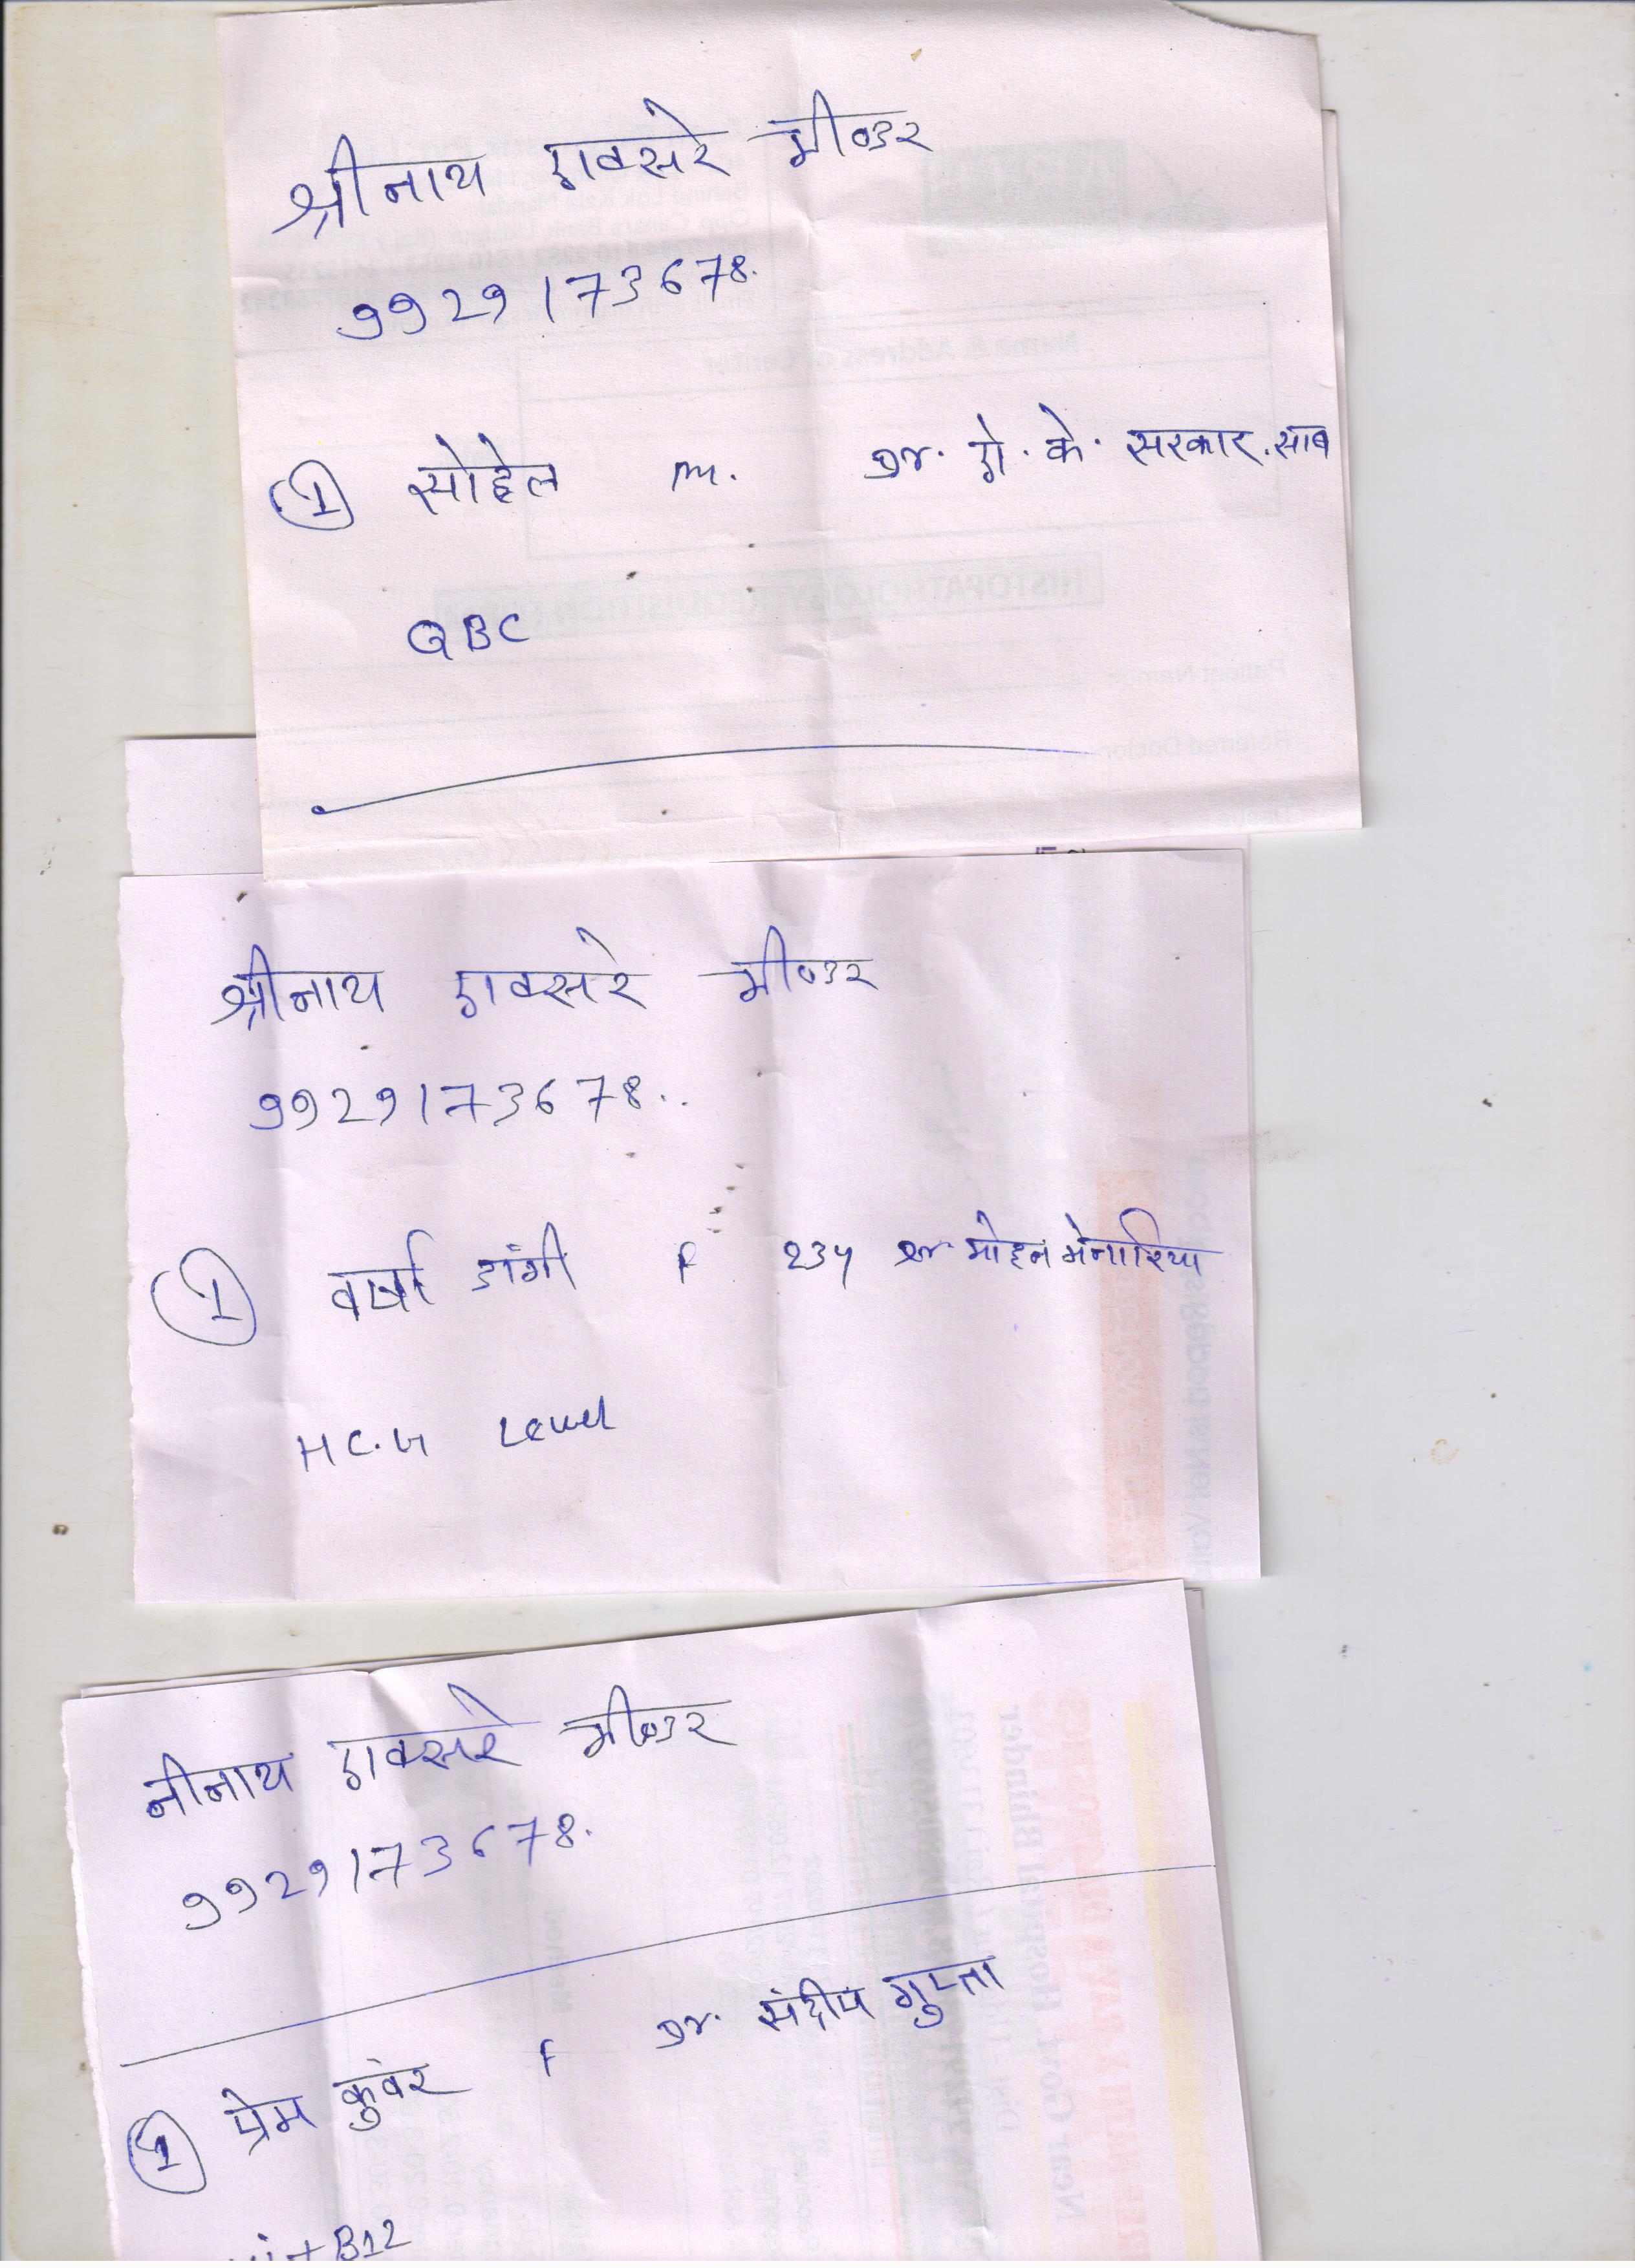 श्रीनाथ एक्सरे भीण्डर
9929173678.
① सोहेल m. Dr. ऐ. के. सरकार. साब
QBC
श्रीनाथ एक्सरे भीण्डर
9929173678..
① वर्षा डांगी F 23y Dr. मोहन मेनारिया
HC.G Level
श्रीनाथ एक्सरे भीण्डर
9929173678.
① प्रेम कुंवर F Dr. संदीप गुप्ता
vit B12